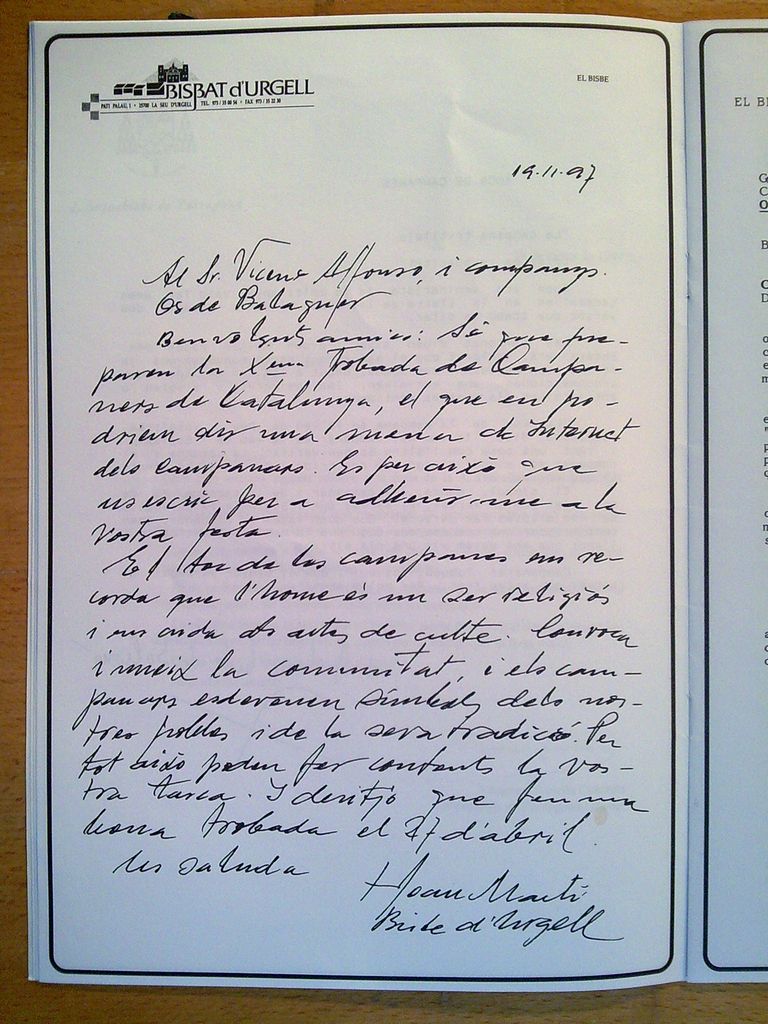 BISBAT d'URGELL
PATI PALAU, 1 • 25700 LA SEU D'URGELL TEL. 973 / 35 00 54 • FAX 973 / 35 22 30
EL BISBE
19.11.97
Al Sr. Vicenç Alfonso i companys.
Os de Balaguer
Benvolguts amics: Sé que pre-
paren la Xena Trobada de Campa-
ners de Catalunya, el que en po-
driem dir una mena de Internet
dels campanars. Es per això que
us escric per a adherir-me a la
vostra festa.
El toc de les campanes ens re-
corda que l'home és un ser religiós
i ens crida als actes de culte. Convoca
i uneix la comunitat, i els cam-
panars esdevenen símbols dels nos-
tres pobles i de la seva tradició. Per
tot això poden fer contents la vos-
tra tasca. I desitjo que facin una
bona trobada el 27 d'abril.
Us saluda
+ Joan Martí
Bisbe d'Urgell
EL BI